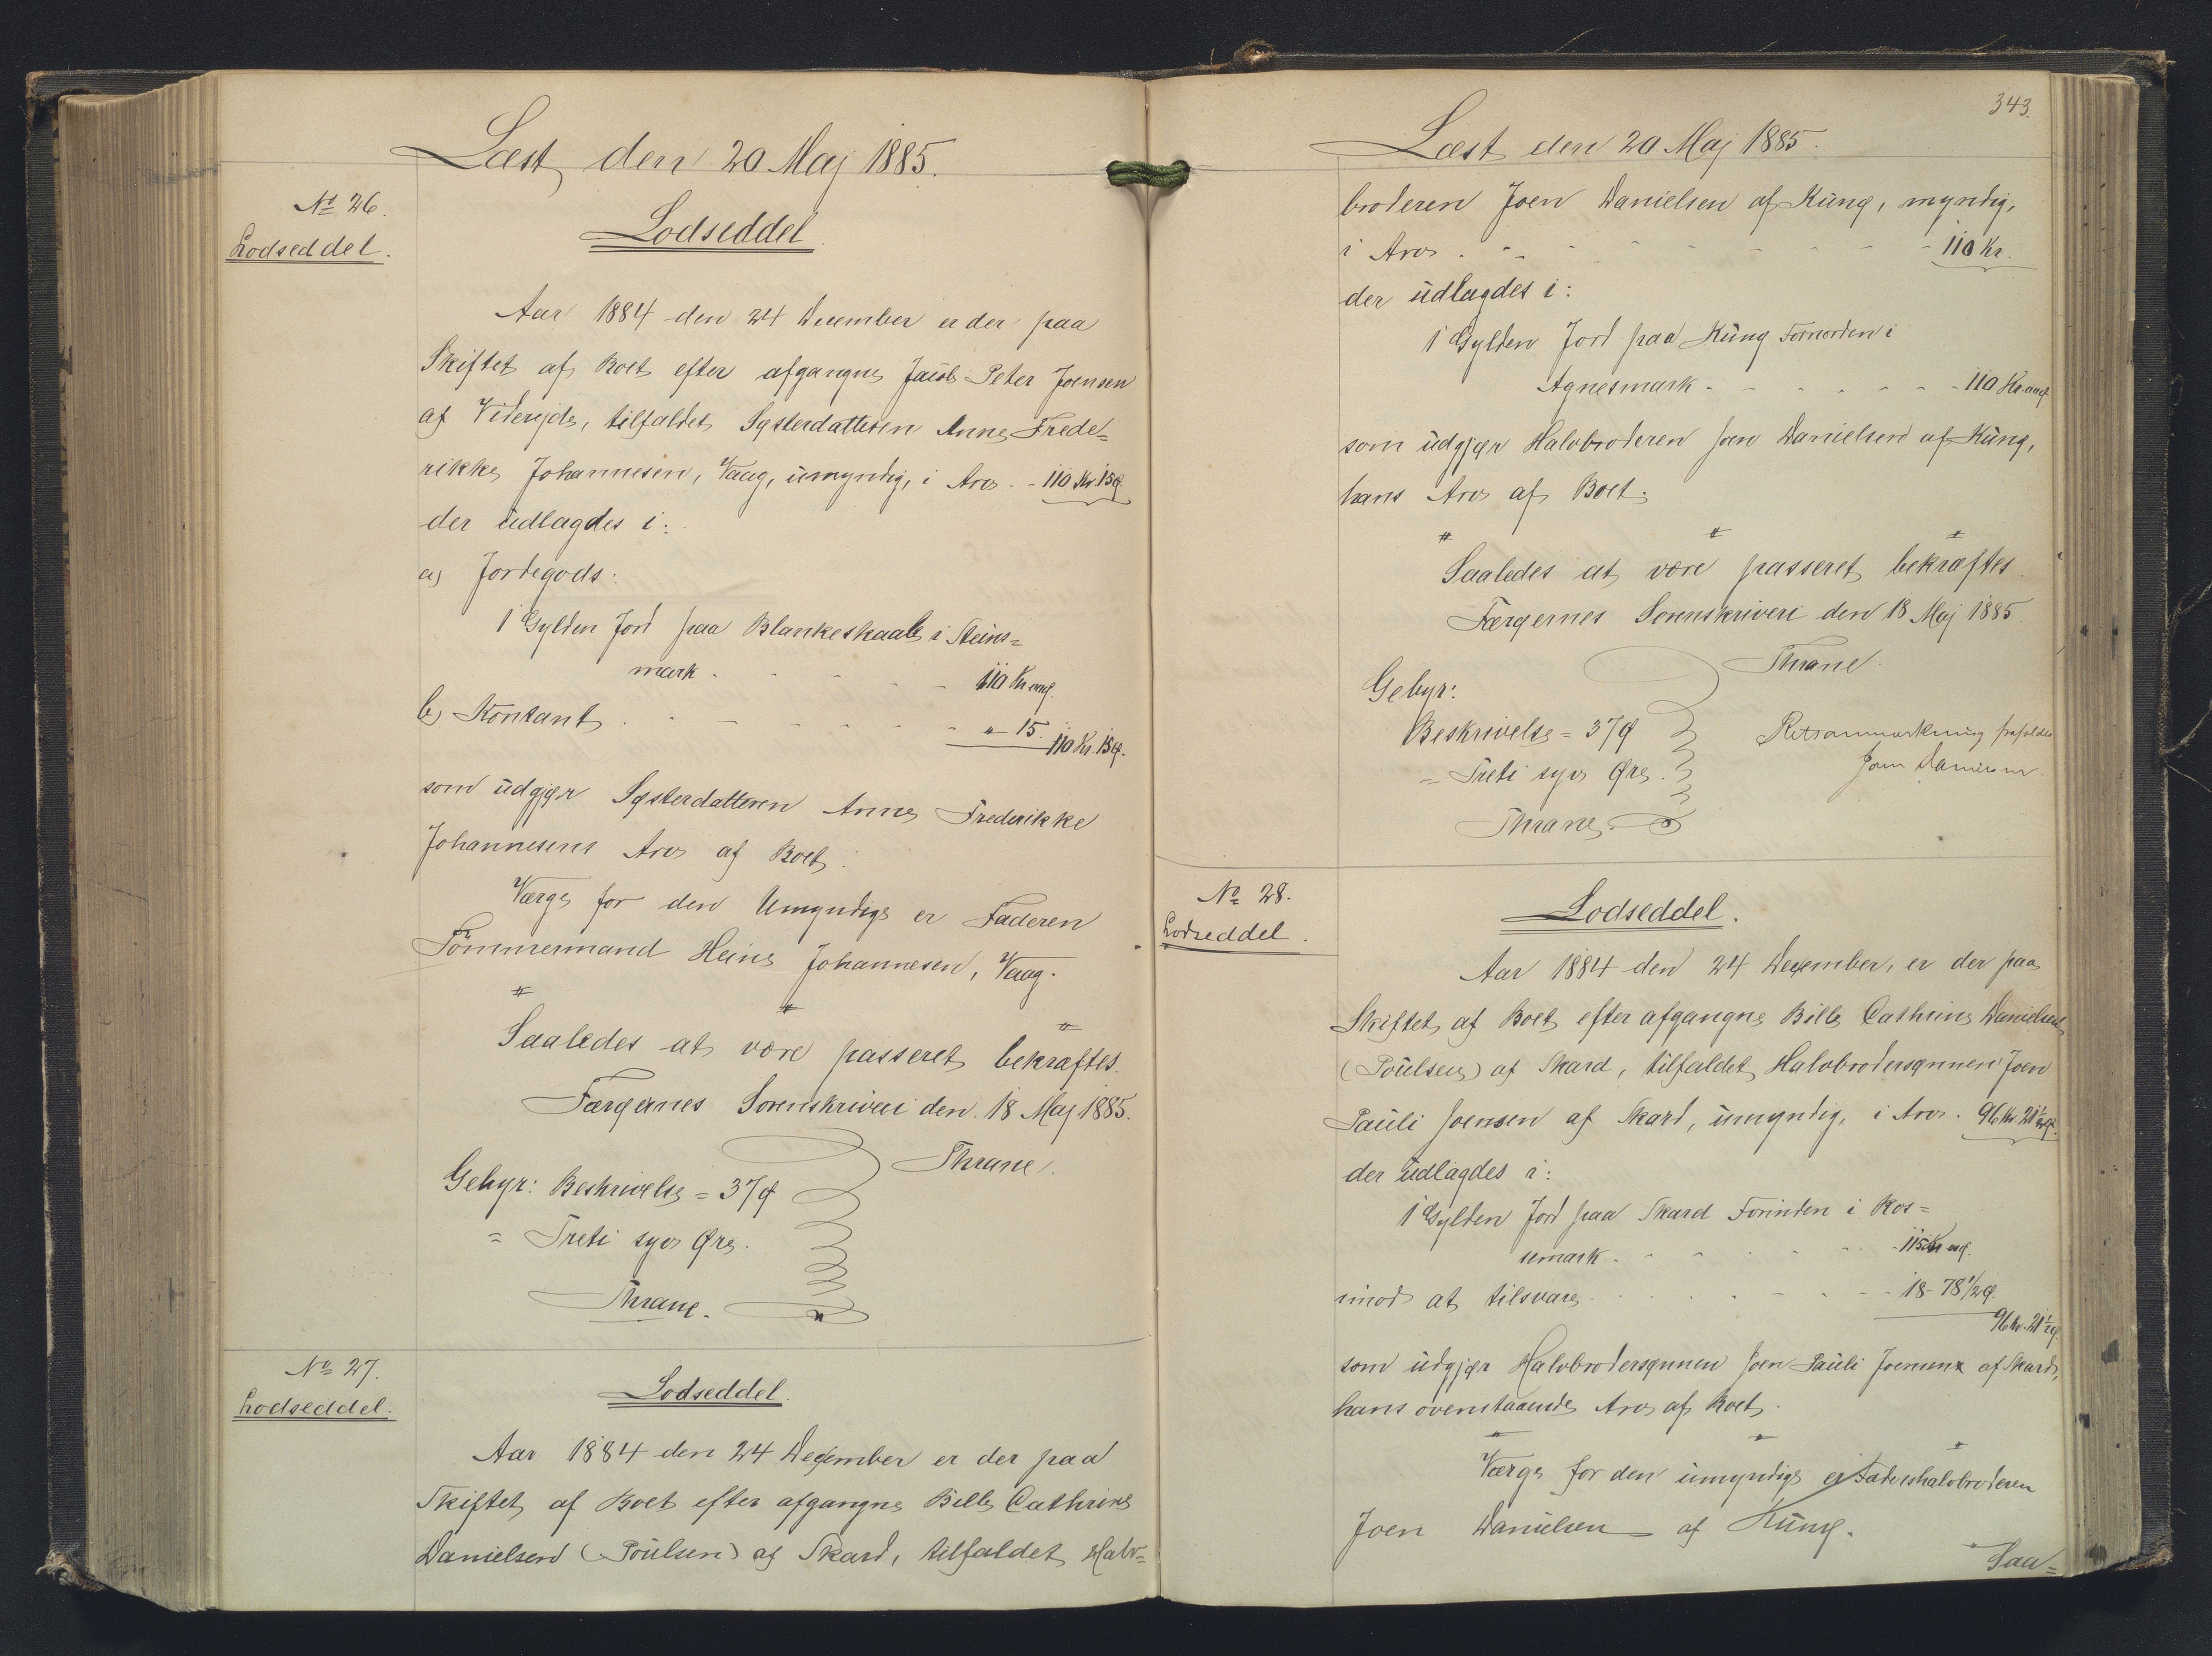 Læst den 20 Maj 1885.
No 26.
Lodseddel.
Lodseddel.
Aar 1884 den 24 December er der paa
Skiftet af Boet efter afgangne Jacob Peter Joensen
af Viderejde, tilfaldet Søsterdatteren Anne Frede=
rikke Johannesen, Vaag, umyndig, i Arv - 110 Kr. 15 Ø.
der udlagdes i:
a) Jordegods:
1 Gylden Jord paa Blankeskaale i Steins=
mark . - - - - 110 Kr. " Ø.
b) Kontant . - - - - - " - 15.
110 Kr. 15 Ø.
som udgjør Søsterdatteren Anne Frederikke
Johannesens Arv af Boet.
Værge for den Umyndige er Faderen
Tömmermand Heine Johannesen, Vaag.
Saaledes at være passeret bekræftes.
Færøernes Sorenskriveri den 18 Maj 1885.
Thrane.
Gebyr: Beskrivelse = 37 Ø
= Treti syv Øre.
Thrane.
No 27.
Lodseddel.
Lodseddel.
Aar 1884 den 24 December er der paa
Skiftet af Boet efter afgangne Bille Cathrine
Danielsen (Poulsen) af Skard, tilfaldet Halv=
343.
Læst den 20 Maj 1885.
broderen Joen Danielsen af Kunø, myndig,
i Arv . - - - - - - - 110 Kr.
der udlagdes i:
1 Gylden Jord paa Kunø Fornorden i
Agnesmark - - - - - - 110 Kr. " Ø.
som udgjør Halvbroderen Joen Danielsen af Kunø,
hans Arv af Boet.
Saaledes at være passeret bekræftes
Færøernes Sorenskriveri den 18 Maj 1885.
Thrane.
Gebyr:
Beskrivelse = 37 Ø
= Treti syv Øre.
Thrane.
Retsanmærkning frafaldes
Joen Danielsen.
No 28.
Lodseddel.
Lodseddel.
Aar 1884 den 24 December, er der paa
Skiftet af Boet efter afgangne Bille Cathrine Danielsen
(Poulsen) af Skard, tilfaldet Halvbrodersønnen Joen
Pauli Joensen af Skard, umyndig, i Arv . 96 Kr. 21½ Ø.
der udlagdes i:
1 Gylden Jord paa Skard Forinden i Kos=
semark . - - - - - 115 Kr. " Ø.
imod at tilsvare - - - - - 18 - 78 1/2 Ø.
96 Kr. 21½ Ø.
som udgjør Halvbrodersønnen Joen Pauli Joensens af Skard,
hans ovenstaaende Arv af Boet.
Værge for den umyndige er Fadershalvbroderen
Joen Danielsen af Kunø.
Saa=